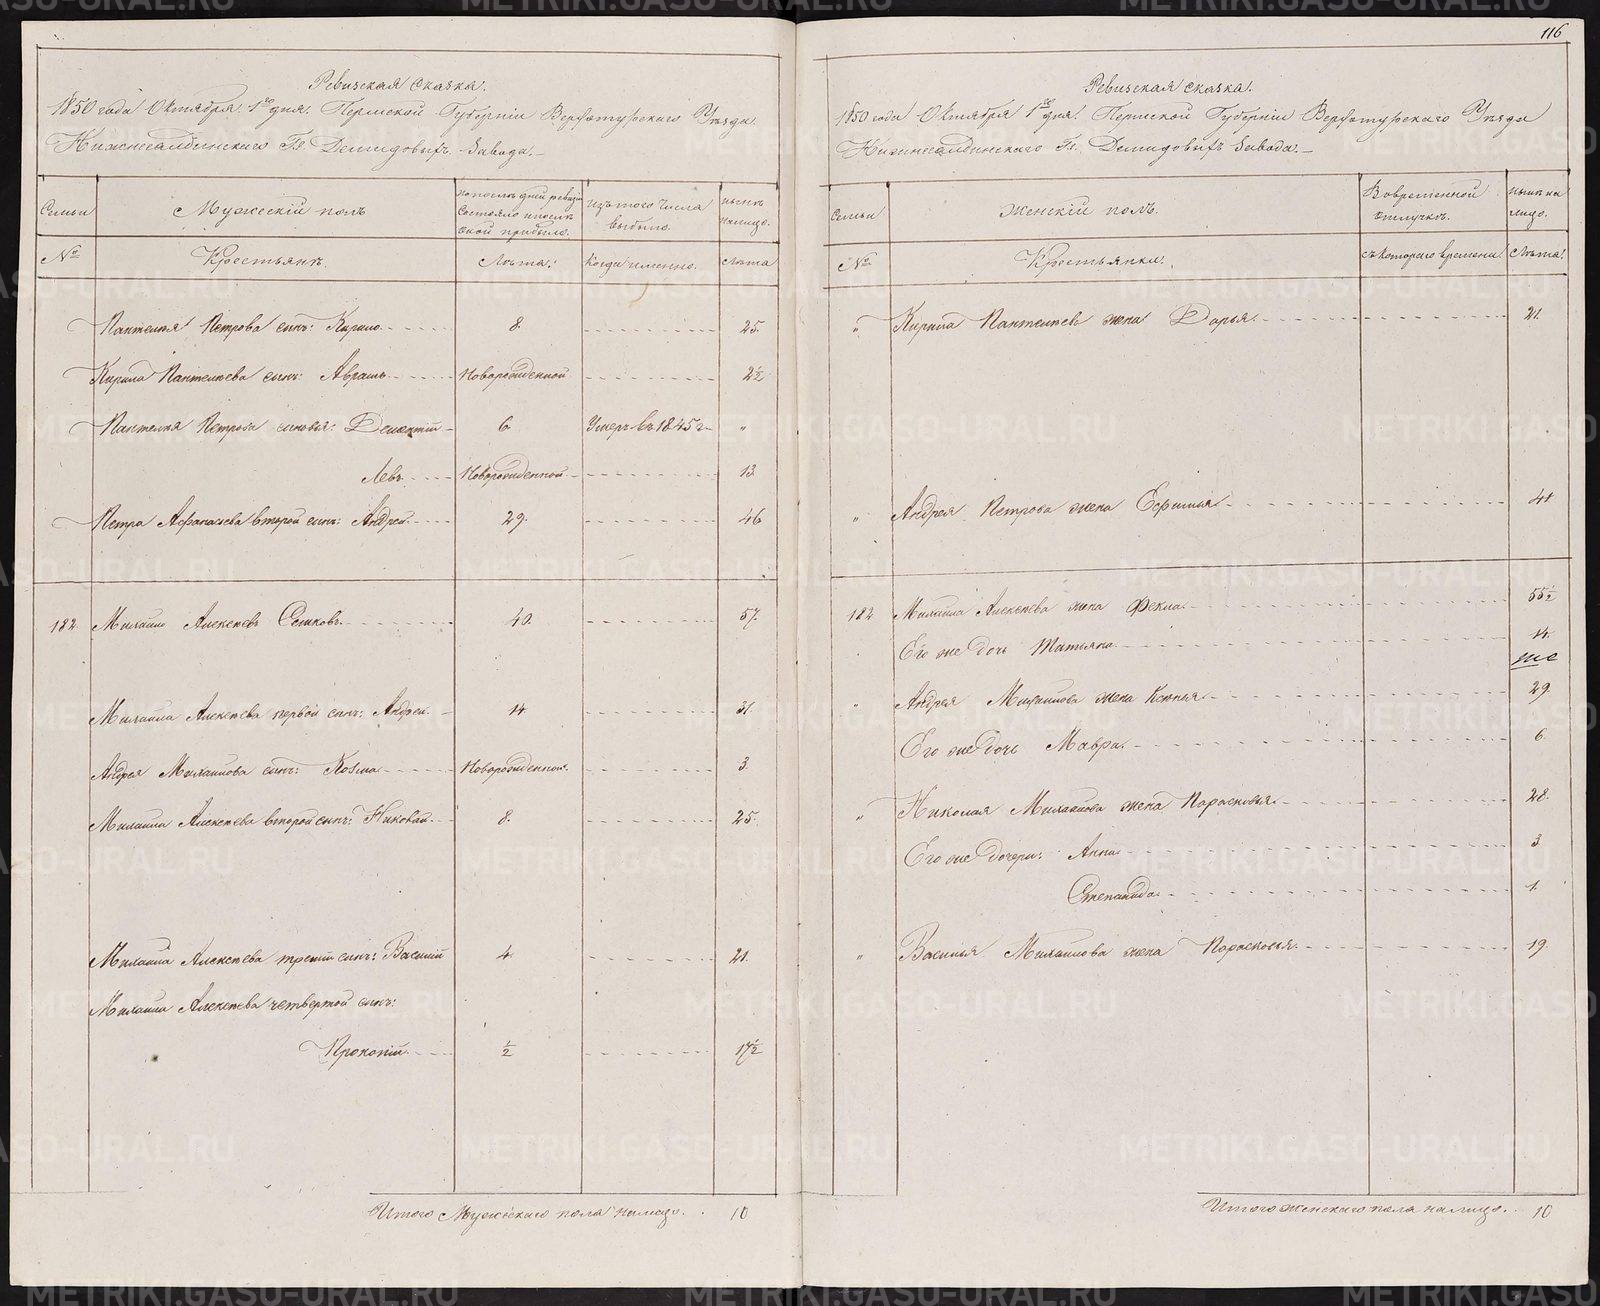 116
Ревизская сказка.
1850 года Октября 1го дня. Пермской Губернiи Верхотурскаго Уѣзда
Нижнесалдинскаго Гг. Демидовыхъ Завода.
Семьи
Мужескiй полъ
По послѣдней ревизiи состояло и послѣ оной прибыло.
Изъ того числа выбыло.
Нынѣ на лицо.
№
Крестьянъ.
Лѣта.
Когда именно.
Лѣта
Пантелея Петрова сынъ: Кирило 8. 25.
Кирила Пантелѣева сынъ: Аврамъ Новорожденной 2½
Пантелея Петрова сыновья: Дементiй 6 Умеръ въ 1845 г. "
Левъ Новорожденной 13
Петра Афанасьева второй сынъ: Андрей 29. 46
182. Михаило Алексѣевъ 40. 57.
Михаила Алексѣева первой сынъ: Андрей 14 31.
Андрея Михаилова сынъ: Козма Новорожденной. 3.
Михаила Алексѣева второй сынъ: Николай 8. 25.
Михаила Алексѣева третiй сынъ: Василiй 4 21.
Михаила Алексѣева четвертой сынъ:
Прокопiй ½ 17½
Итого Мужескаго пола на лицо. 10
Ревизская сказка.
1850 года Октября 1го дня. Пермской Губернiи Верхотурскаго Уѣзда
Нижнесалдинскаго Гг. Демидовыхъ Завода.
Семьи
Женскiй полъ.
Во временной отлучкѣ.
Нынѣ на лицо.
№
Крестьянки.
Съ котораго времени.
Лѣта.
" Кирила Пантелѣева жена Дарья 21.
" Андрея Петрова жена Ефимья 41
182 Михаила Алексѣева жена Фекла 55½
Его же дочь Татьяна 14.
" Андрея Михаилова жена Ксенья 29.
Его же дочь Мавра. 6.
" Николая Михаилова жена Парасковья 28.
Его же дочери: Анна 3
Степанида 1.
" Василья Михаилова жена Парасковья 19.
Итого женскаго пола на лицо. 10
METRIKI.GASO-URAL.RU